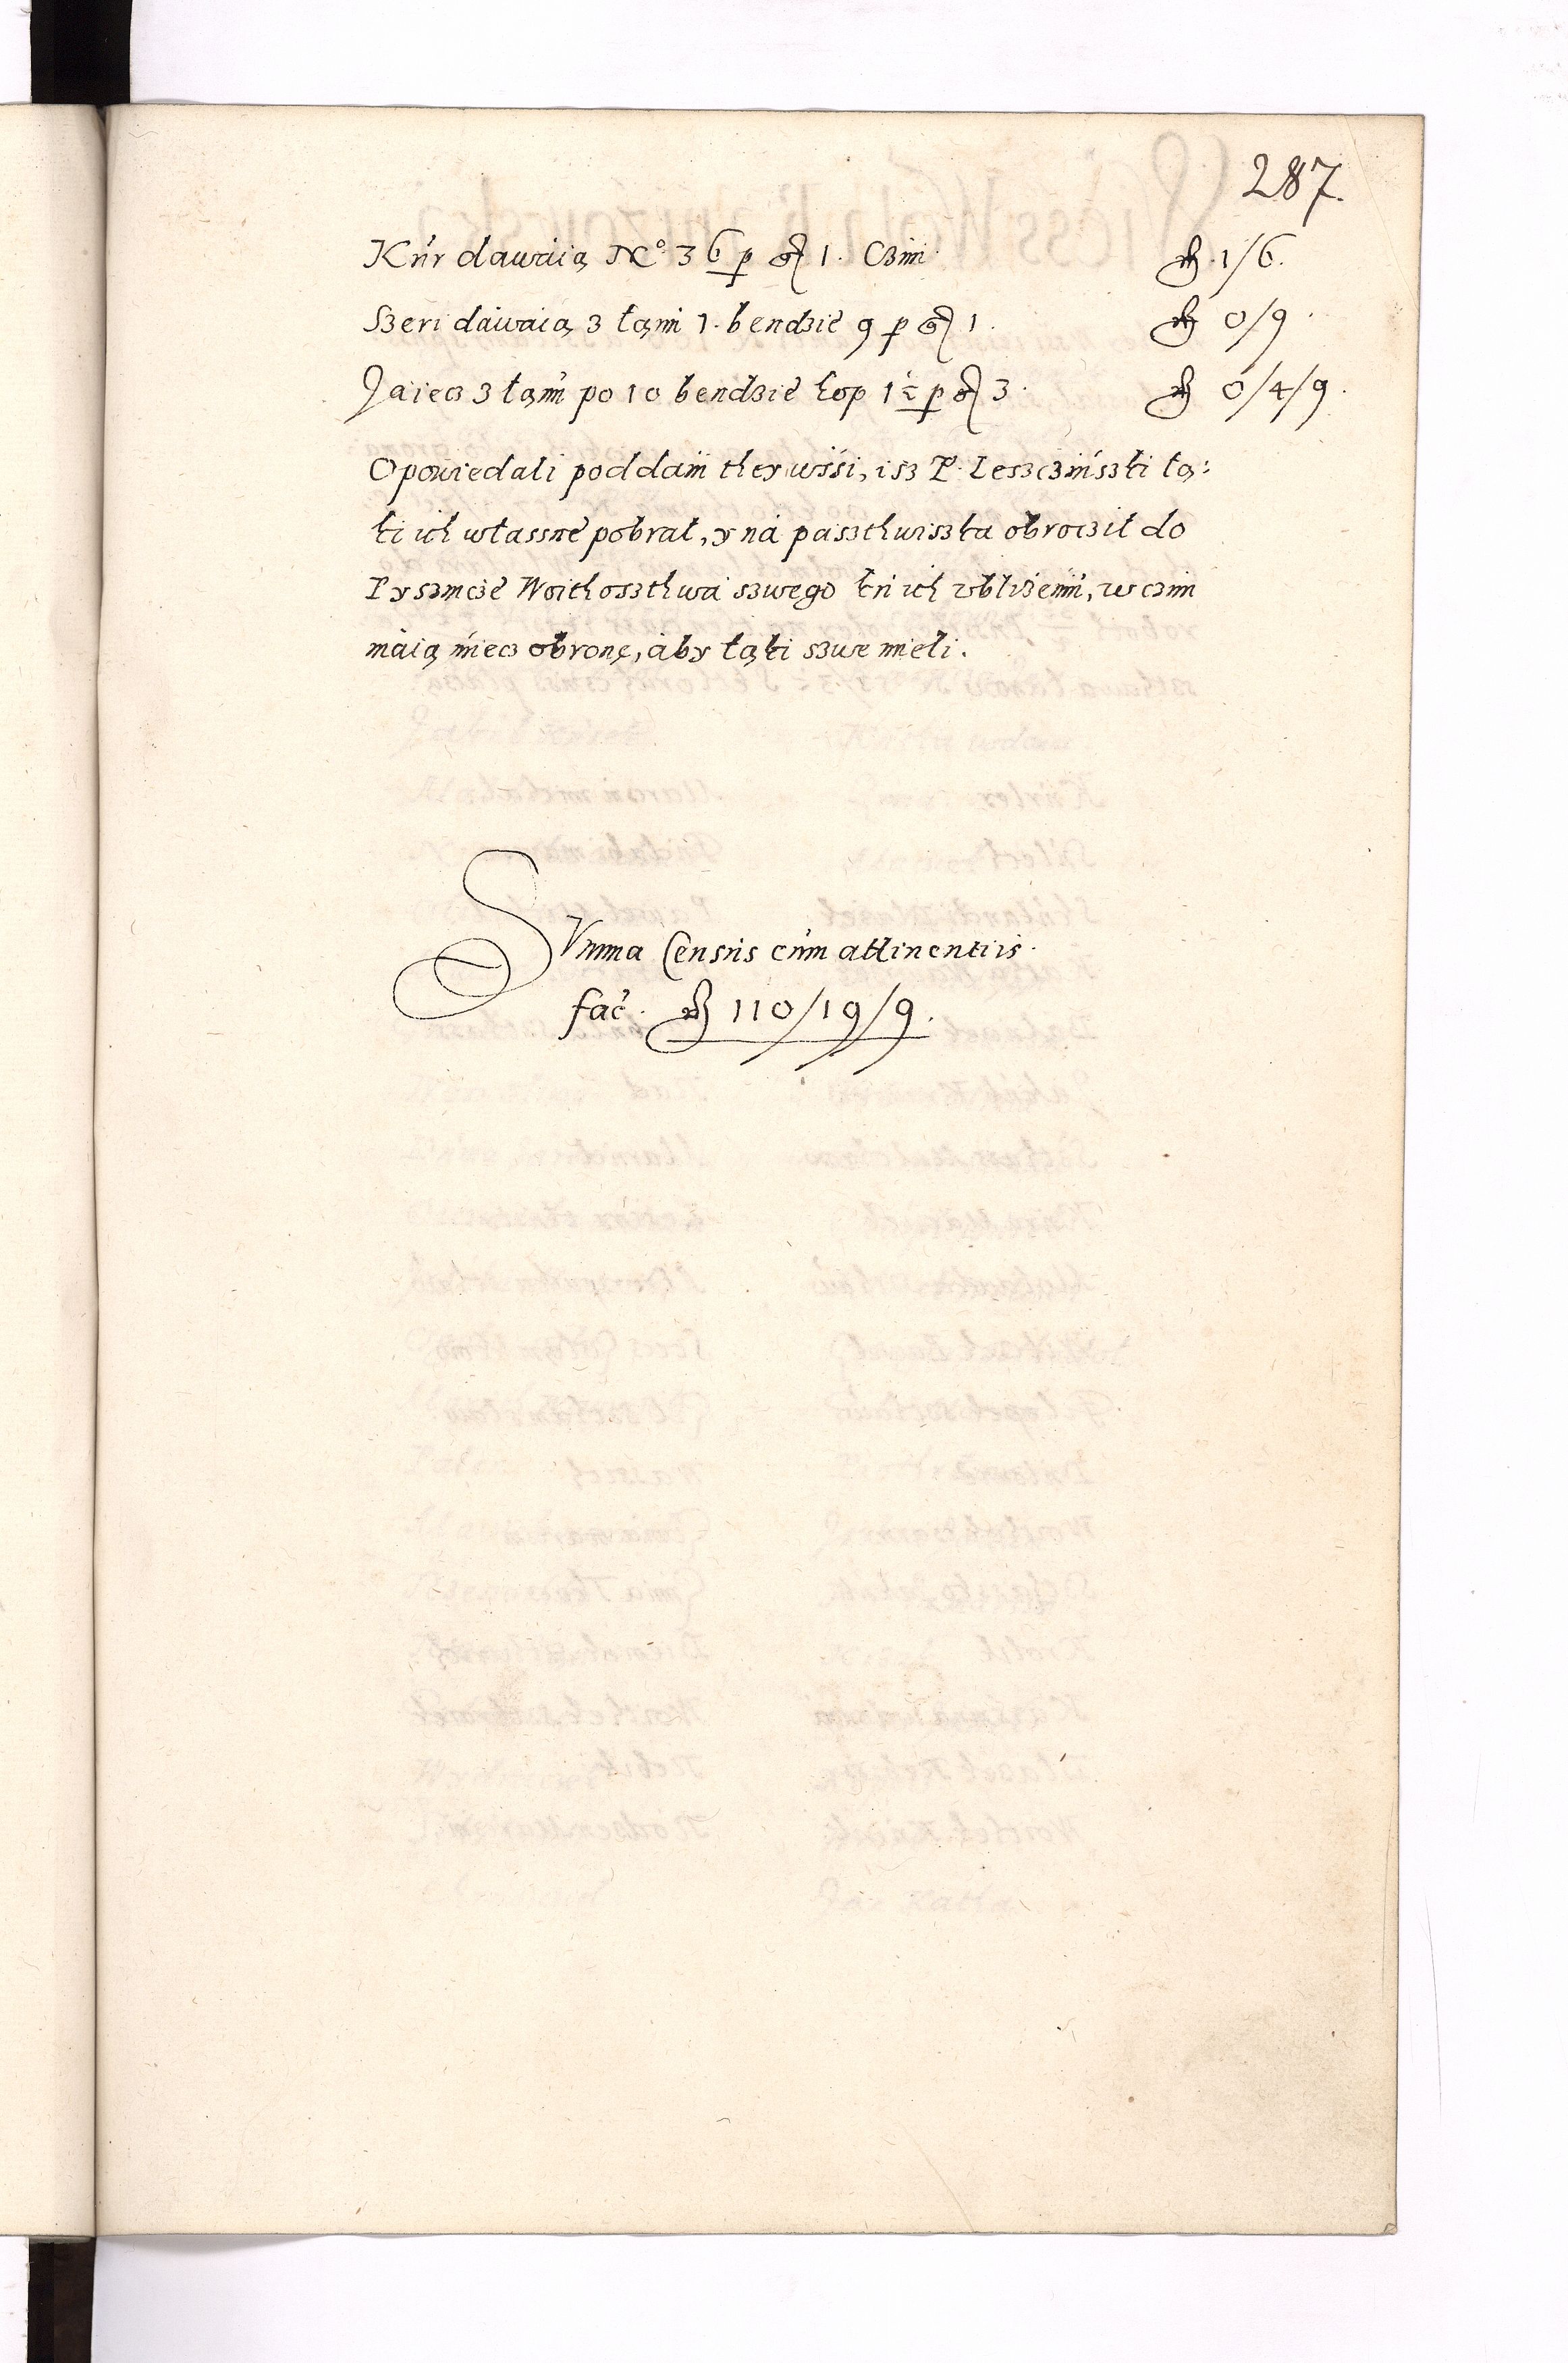 287.
Kur dawaią No 36 p gr 1. Czini fl. 1/6.
Szeri dawaią z łąni 1. bendzie 9 p gr 1. fl 0/9.
Jaiecz z łąni po 10 bendzie kop 1½ p gr 3. fl 0/4/9.
Opowiedali poddani they wssi, isz P. Leszczinszki łą:
ki ich własne pobrał, y na paszthwiszka obrocził do
Woithoszthwa szwego ku ich ubliżeniu, w czim
maią miecz obronę, aby łąki szwe mieli.
Summa Census cum attinentiis
fac. fl 110/19/9.